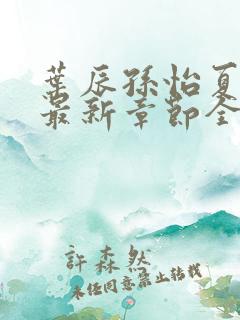 葉辰孫怡夏
最新章節全
許森然
未經同意禁止轉載